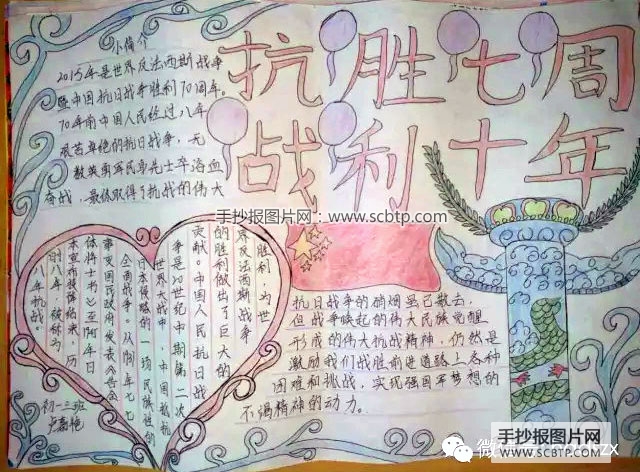 抗战
胜利
七十
周年
小简介
2015年是世界反法西斯战争
暨中国抗日战争胜利70周年。
70年前中国人民经过八年
艰苦卓绝的抗日战争,无
数英勇军民率先士卒浴血
奋战,最终取得了抗战的伟大
胜利,为世
界反法西斯战争
的胜利做出了巨大的
贡献。中国人民抗日战
争是20世纪中期第二次
世界大战中,中国抵抗
日本侵略的一场民族性的
全面战争。从 年七七
事变国民政府发表《告全
体将士书》至 年日
本宣布投降结束,历
时八年,被称为
八年抗战。
初一三班
抗日战争的硝烟虽已散去,
但战争唤起的伟大民族觉醒
形成的伟大抗战精神,仍然是
激励我们战胜前进道路上各种
困难和挑战,实现强国军梦想的
不竭精神的动力。
手抄报图片网:www.scbtp.com
手抄报图片网
WWW.SCBTP.COM